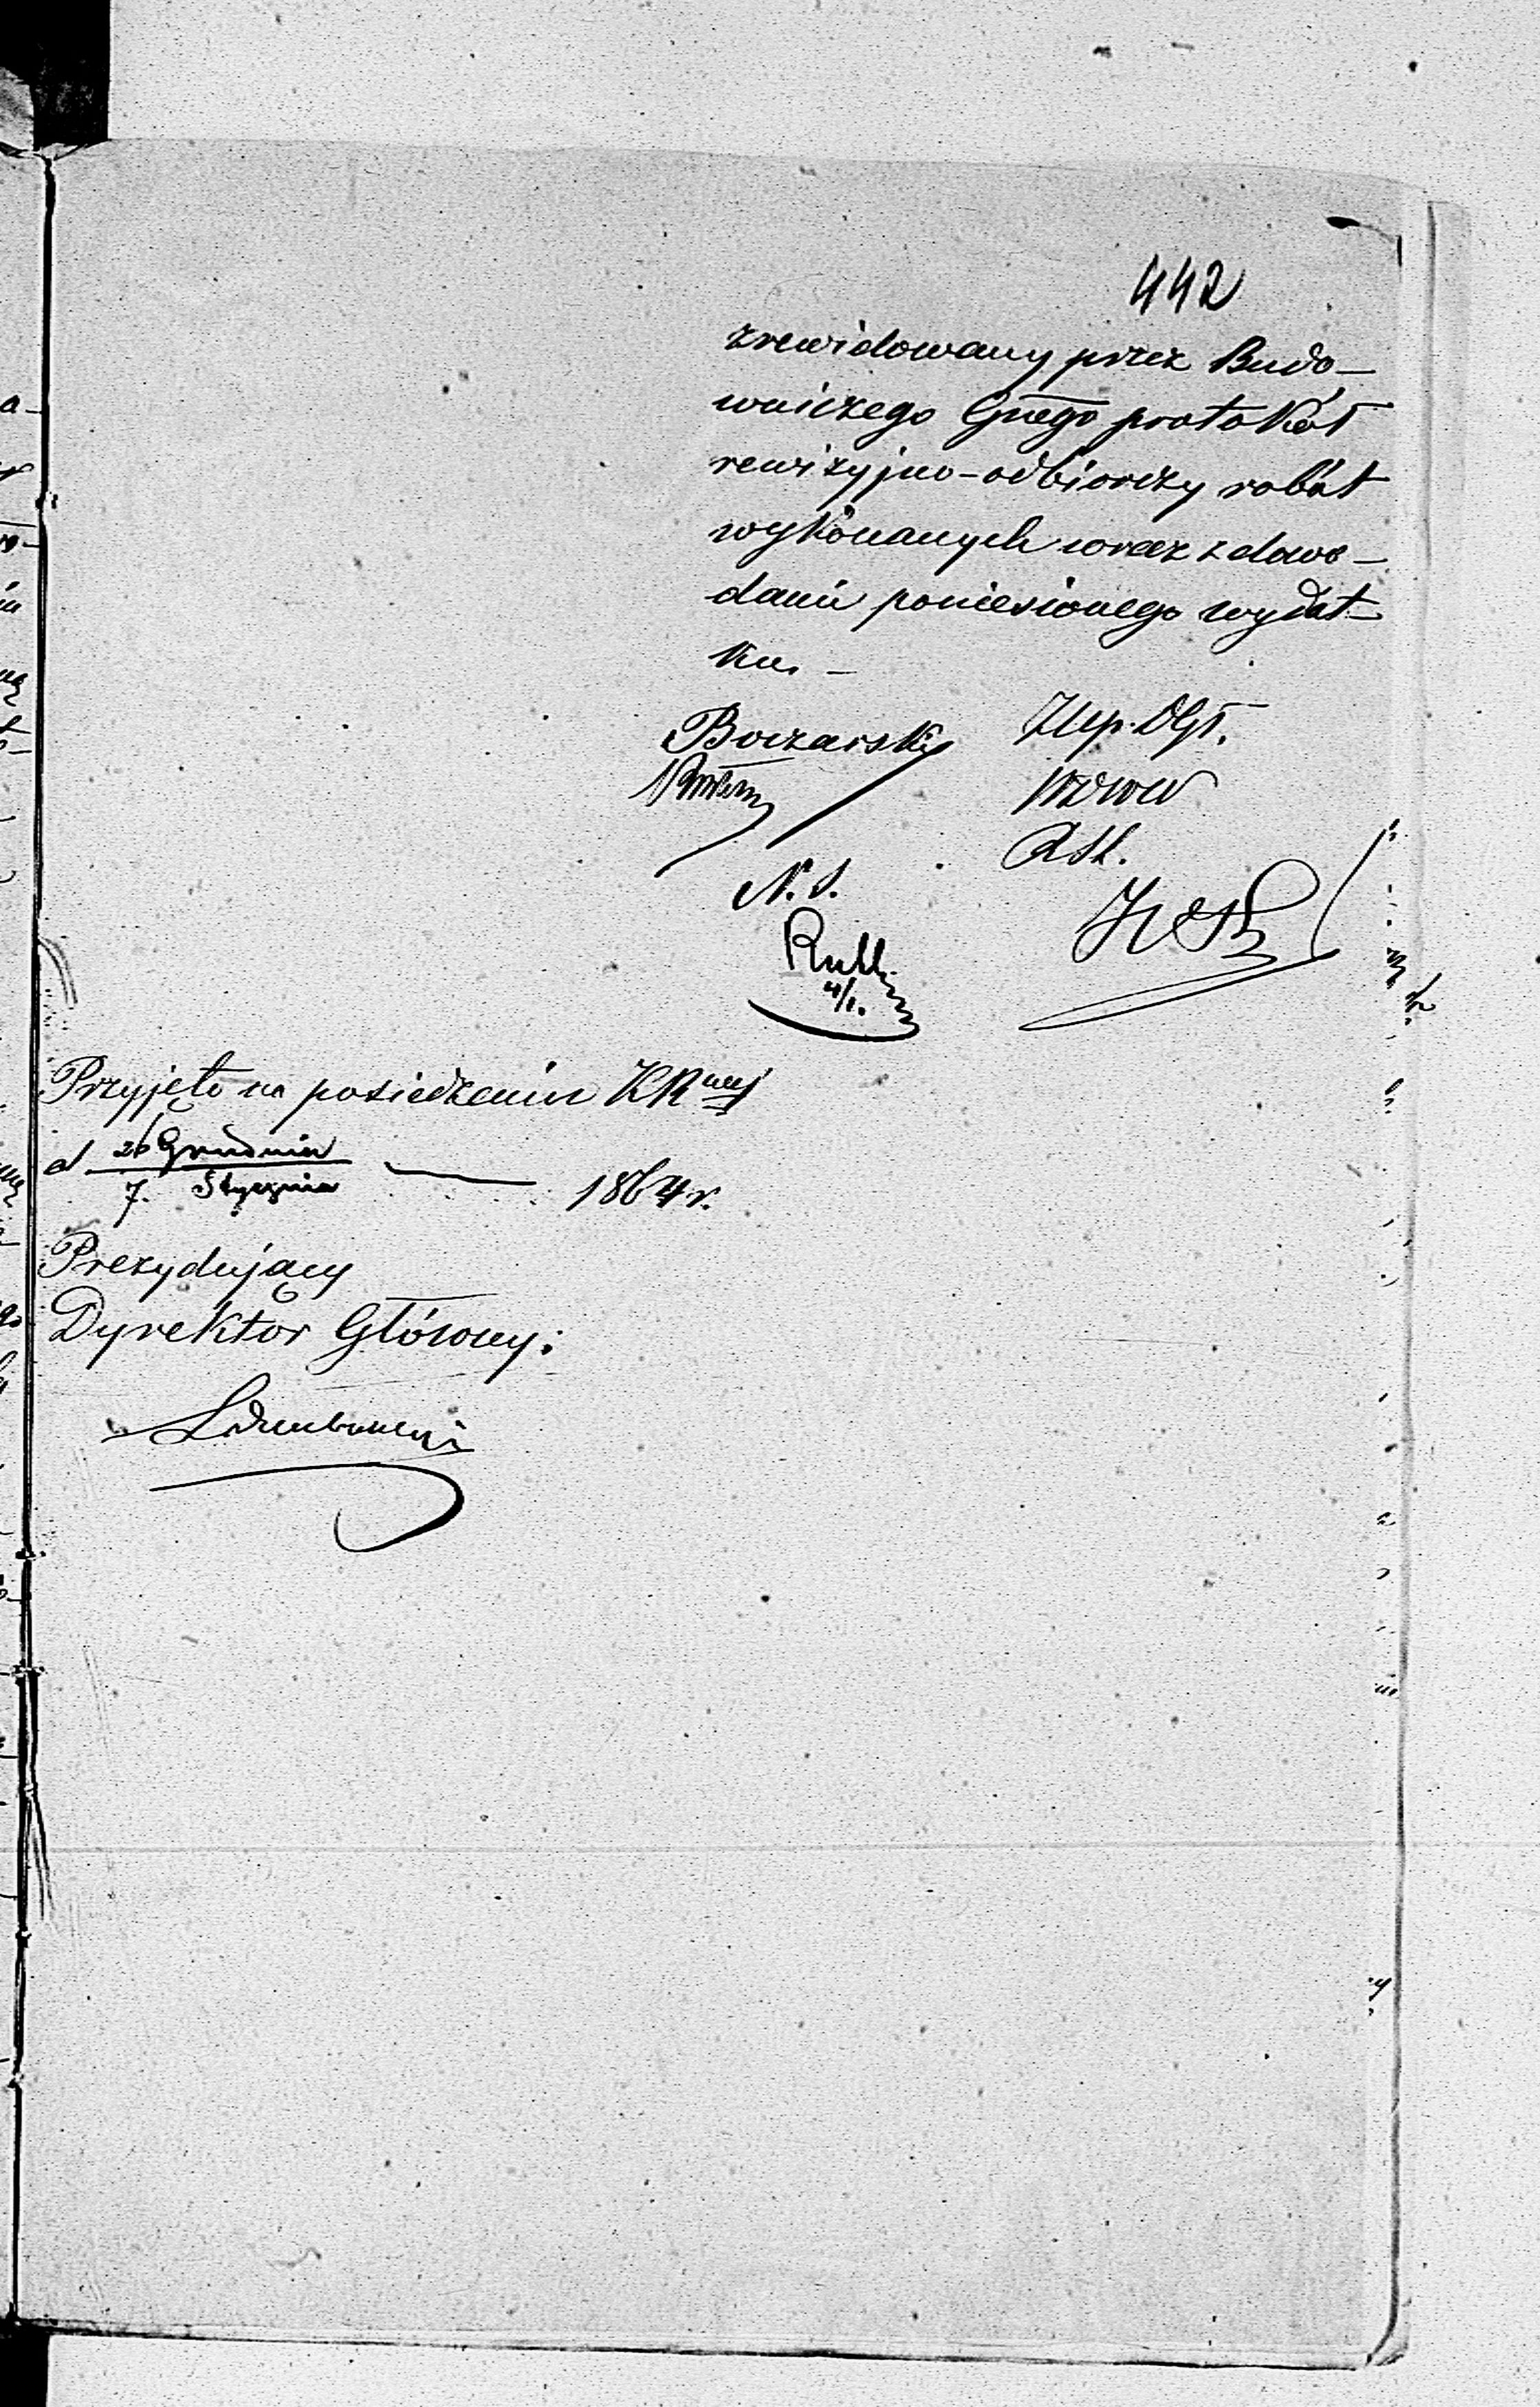 442
zrewidowany przez Budo-
wniczego Gnego protokół
rewizyjno-odbiorczy robót
wykonanych wraz z dowo-
dami poniesionego wydat-
ku. -
Boczarski
N. S.
Rutk.
4/1.
Przyjęto na posiedzeniu KRnej
d 26 Grudnia
7. Stycznia 1864 r.
Prezydujący
Dyrektor Główny: